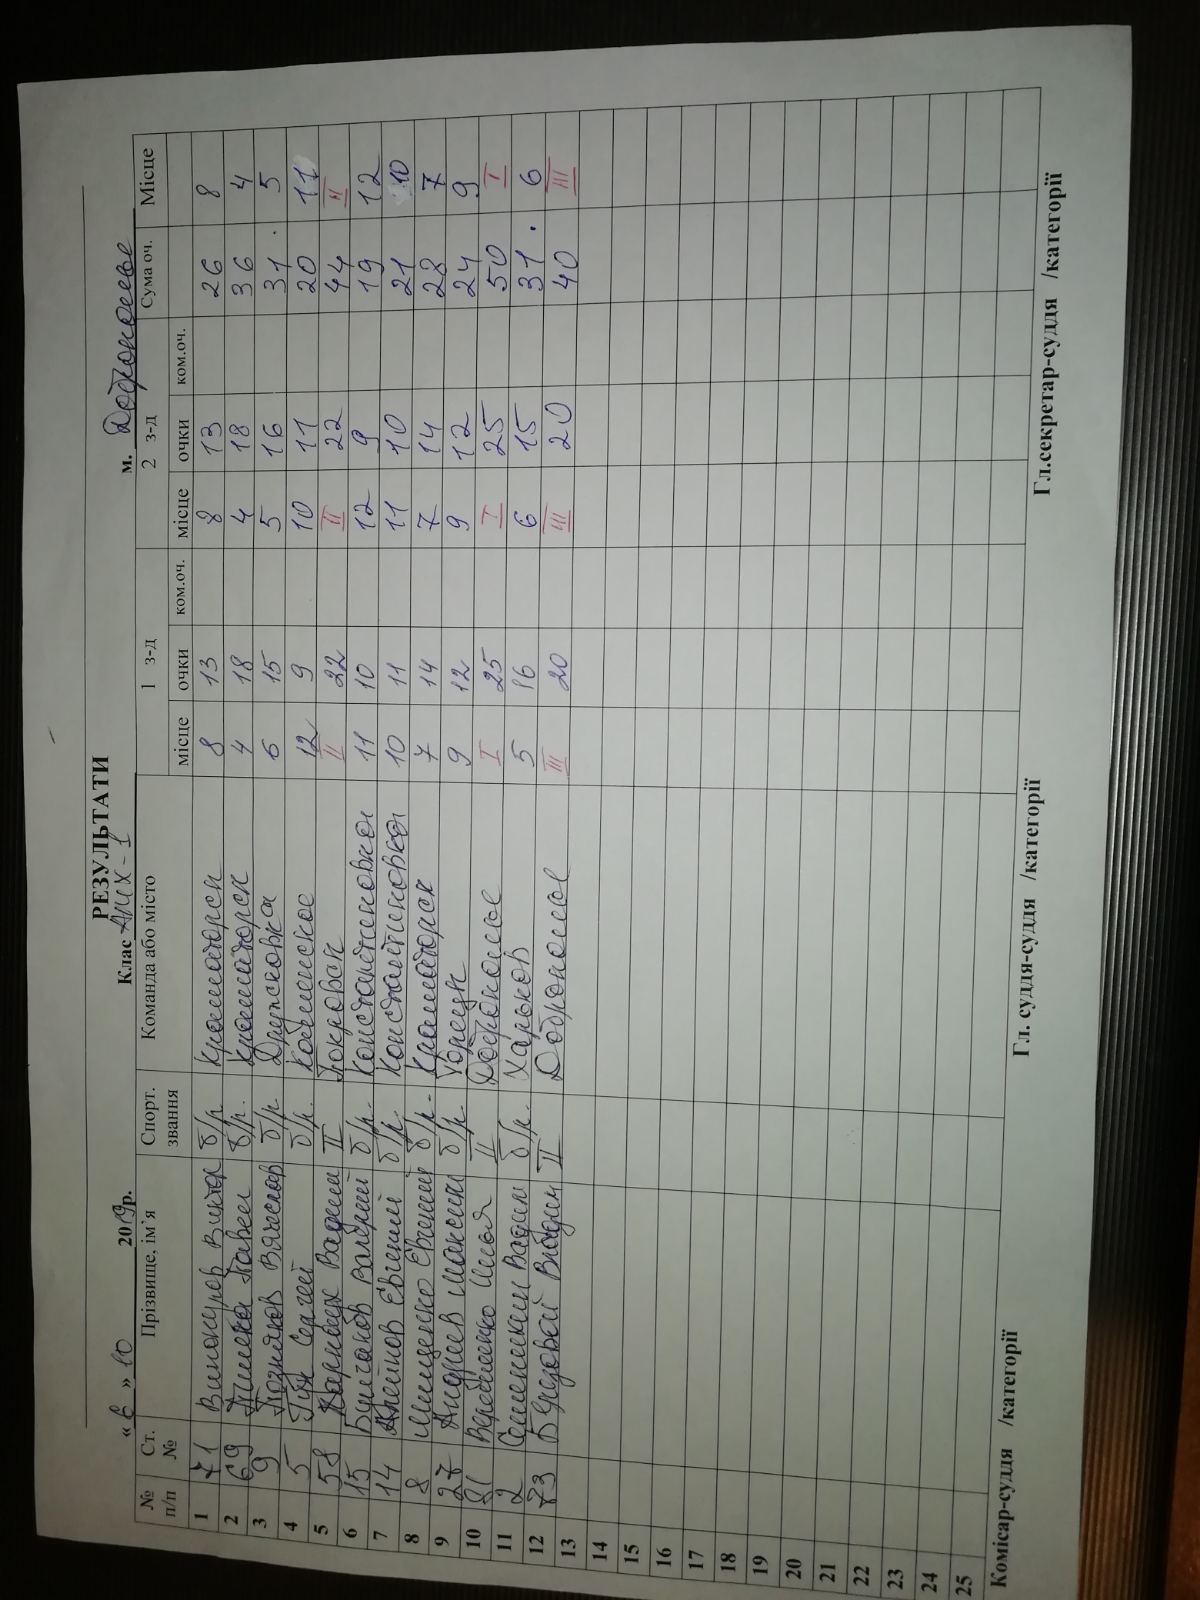 РЕЗУЛЬТАТИ
Клас АМХ-1
«6» 10 2019р. м. Доброполье
№ п/п Ст. № Прізвище, ім'я Спорт. звання Команда або місто 1 з-д 2 з-д Сума оч. Місце
місце очки ком.оч. місце очки ком.оч.
1 71 Винокуров Виктор б/р. Краматорск 8 13 8 13 26 8
2 69 Павел б/р. Краматорск 4 18 4 18 36 4
3 9 Позняков Вячеслав б/р Дружковка 6 15 5 16 31. 5
4 5 Гуж Сергей б/р. 12 9 10 11 20 11
5 58 Вадим II Покровск II 22 II 22 44 II
6 15 Валерий б/р. Константиновка 11 10 12 9 19 12
7 14 Евгений б/р. Константиновка 10 11 11 10 21 10
8 8 Мищенко Евгений б/р. Краматорск 7 14 7 14 28 7
9 27 Андреев Максим б/р 9 12 9 12 24 9
10 81 Илья II Доброполье I 25 I 25 50 I
11 2 Вадим б/р. Харьков 5 16 6 15 31. 6
12 73 II Доброполье III 20 III 20 40 III
13
14
15
16
17
18
19
20
21
22
23
24
25
Комісар-суддя /категорії Гл. суддя-суддя /категорії Гл.секретар-суддя /категорії